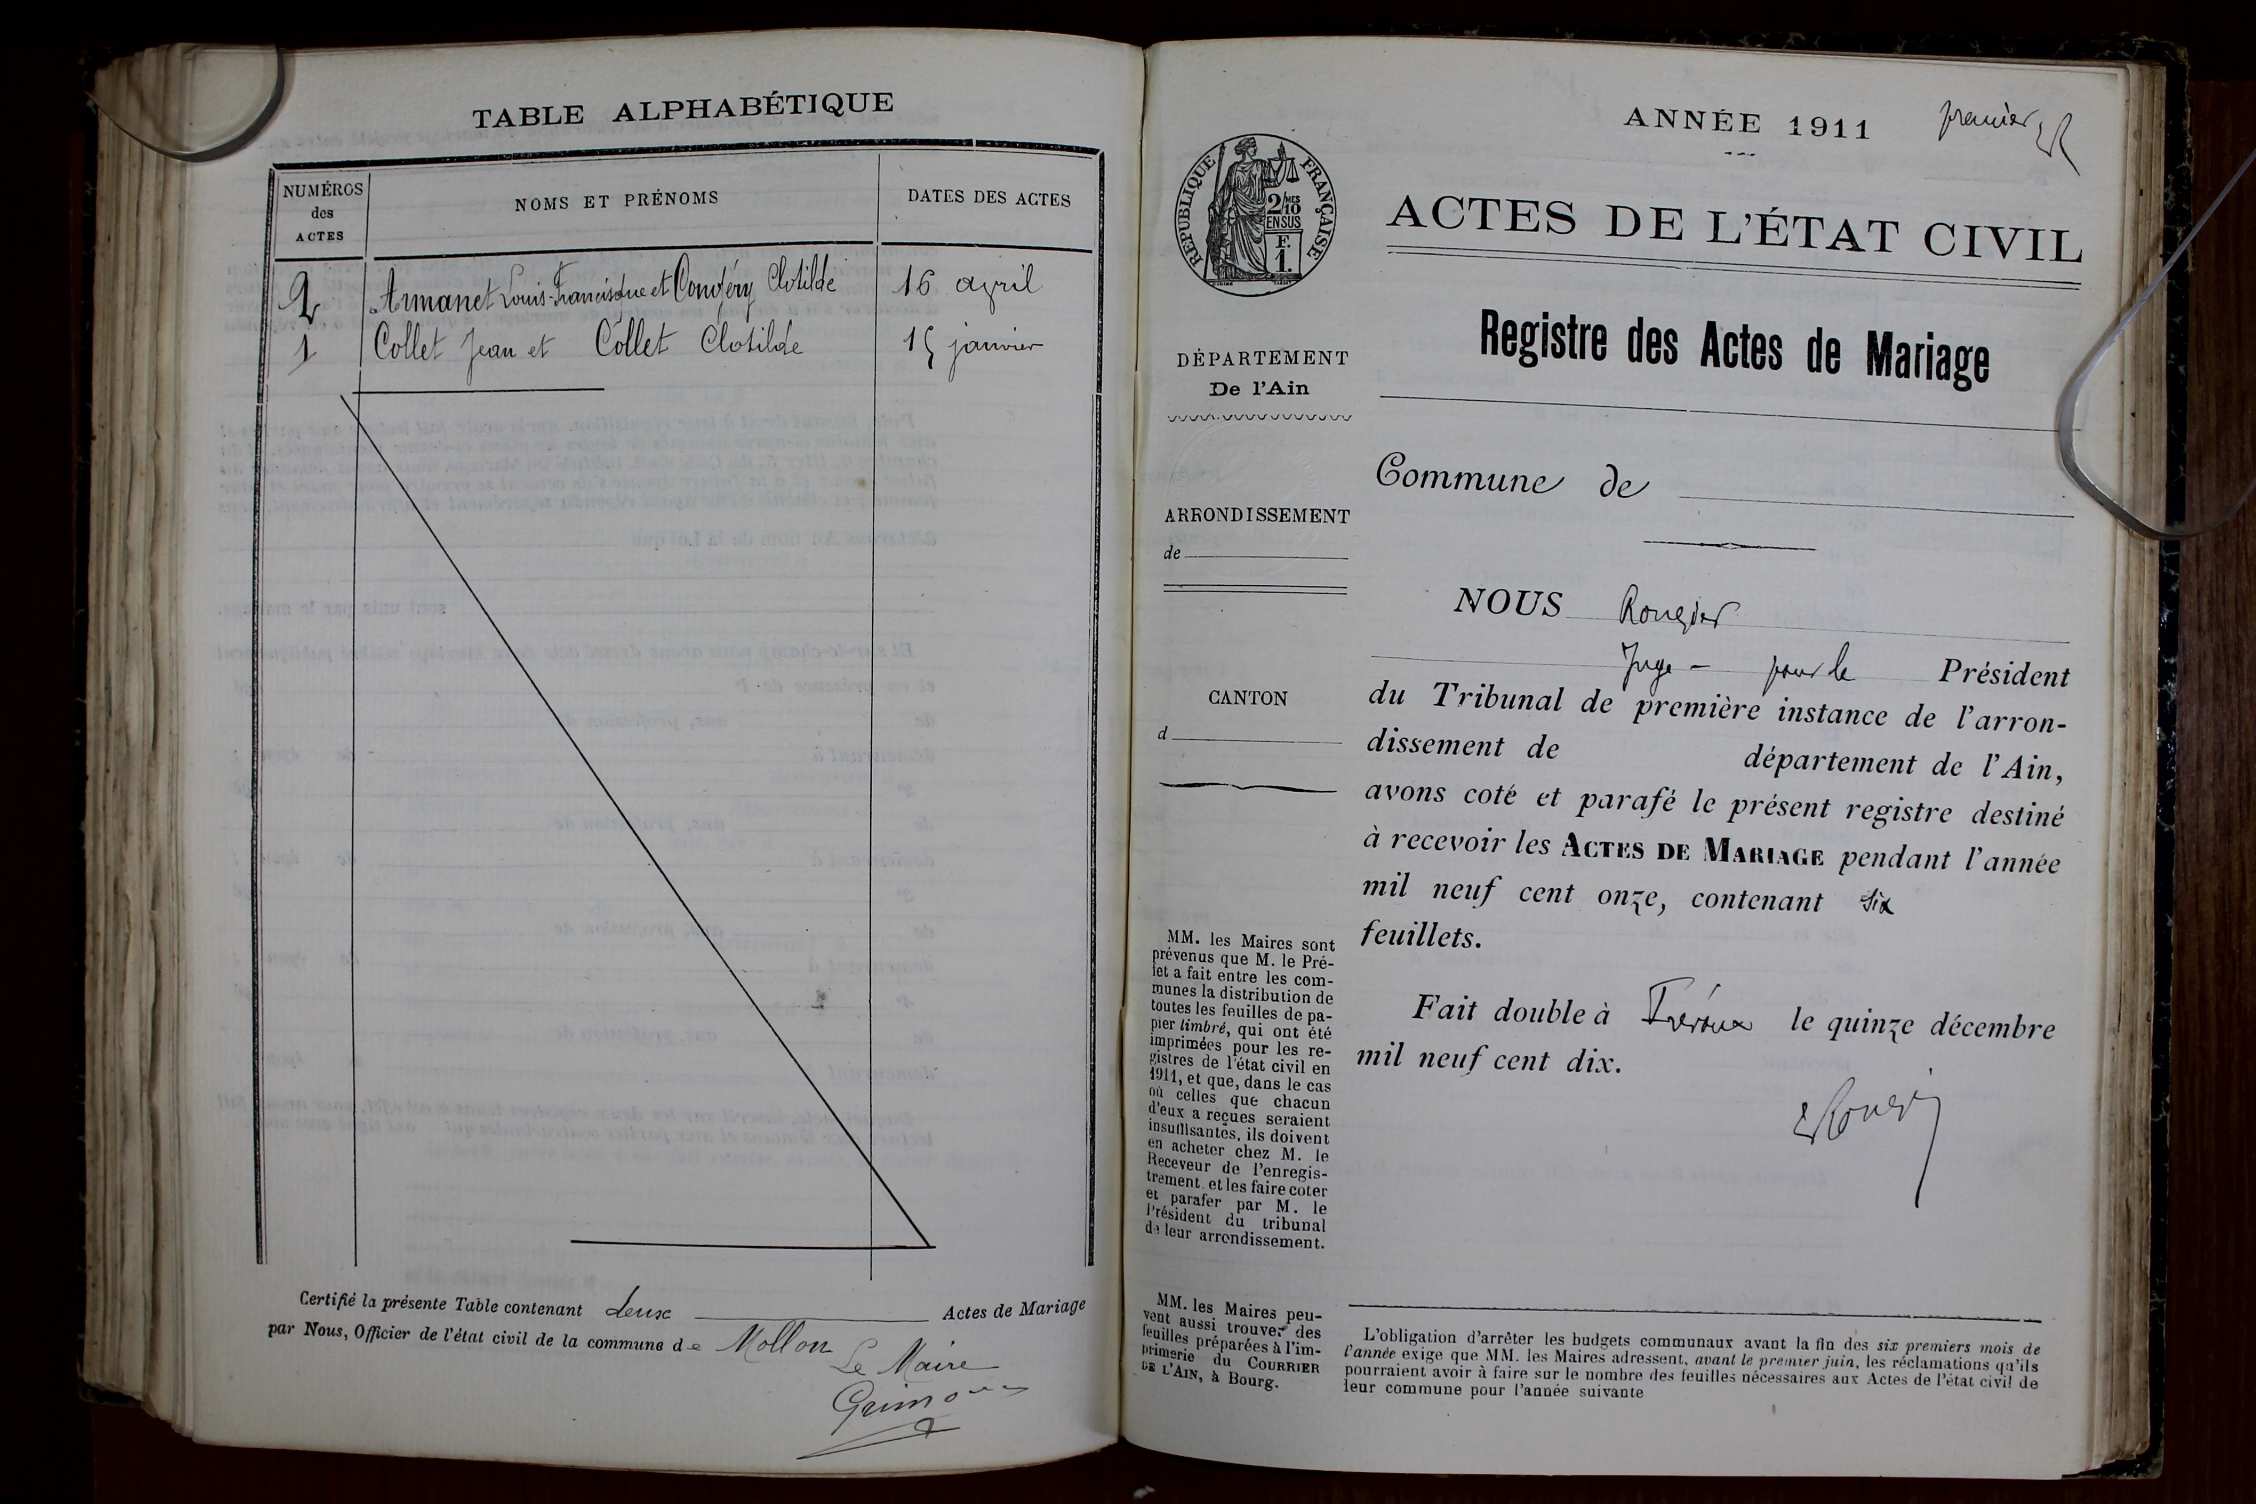 TABLE ALPHABÉTIQUE
NUMÉROS
des
ACTES
NOMS ET PRÉNOMS
DATES DES ACTES
2 Armanet Louis-Francisque et Convéry Clotilde 16 avril
1 Collet Jean et Collet Clotilde 15 janvier
Certifié la présente Table contenant deux Actes de Mariage
par Nous, Officier de l'état civil de la commune de Mollon
Le Maire
ANNÉE 1911
premier
RÉPUBLIQUE FRANÇAISE
2/10 MES
EN SUS
F.
1.
ACTES DE L'ÉTAT CIVIL
Registre des Actes de Mariage
DÉPARTEMENT
De l'Ain
ARRONDISSEMENT
de
CANTON
d
MM. les Maires sont
prévenus que M. le Pré-
fet a fait entre les com-
munes la distribution de
toutes les feuilles de pa-
pier timbré, qui ont été
imprimées pour les re-
gistres de l'état civil en
1911, et que, dans le cas
où celles que chacun
d'eux a reçues seraient
insuffisantes, ils doivent
en acheter chez M. le
Receveur de l'enregis-
trement et les faire coter
et parafer par M. le
Président du tribunal
de leur arrondissement.
MM. les Maires peu-
vent aussi trouver des
feuilles préparées à l'im-
primerie du COURRIER
DE L'AIN, à Bourg.
Commune de
NOUS Rougier
Juge - pour le Président
du Tribunal de première instance de l'arron-
dissement de département de l'Ain,
avons coté et parafé le présent registre destiné
à recevoir les ACTES DE MARIAGE pendant l'année
mil neuf cent onze, contenant six
feuillets.
Fait double à Trévoux le quinze décembre
mil neuf cent dix.
Rougier
L'obligation d'arrêter les budgets communaux avant la fin des six premiers mois de
l'année exige que MM. les Maires adressent, avant le premier juin, les réclamations qu'ils
pourraient avoir à faire sur le nombre des feuilles nécessaires aux Actes de l'état civil de
leur commune pour l'année suivante